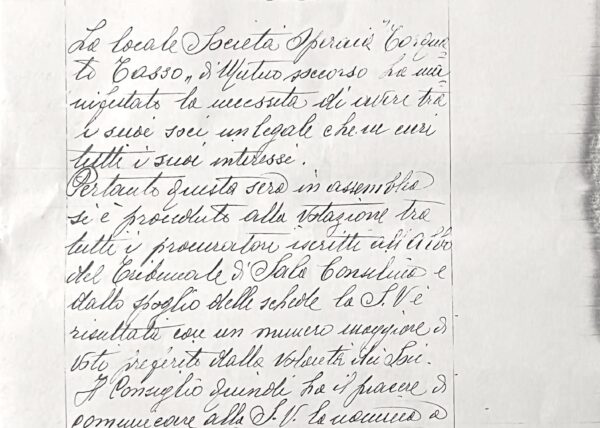 La locale Società Operaia "Torqua=
to Tasso„ di Mutuo soccorso ha ma=
nifestato la necessità di avere tra
i suoi soci un legale che ne curi
tutti i suoi interessi.
Pertanto questa sera in assemblea
si è proceduto alla votazione tra
tutti i procuratori iscritti all'Albo
del Tribunale di Sala Consilina e
dallo spoglio delle schede la S.V è
risultata con un numero maggiore di
voti preferito dalla volontà dei Soci.
Il Consiglio quindi ha il piacere di
comunicare alla S.V. la nomina a